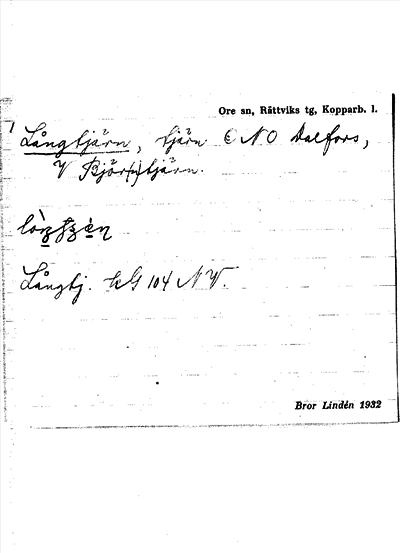 Ore sn, Rättviks tg, Kopparb. l.
Långtjärn, tjärn € NO Dalfors,
V Björ(n)tjärn.
Långtj. kG 104 NV.
Bror Lindén 1932